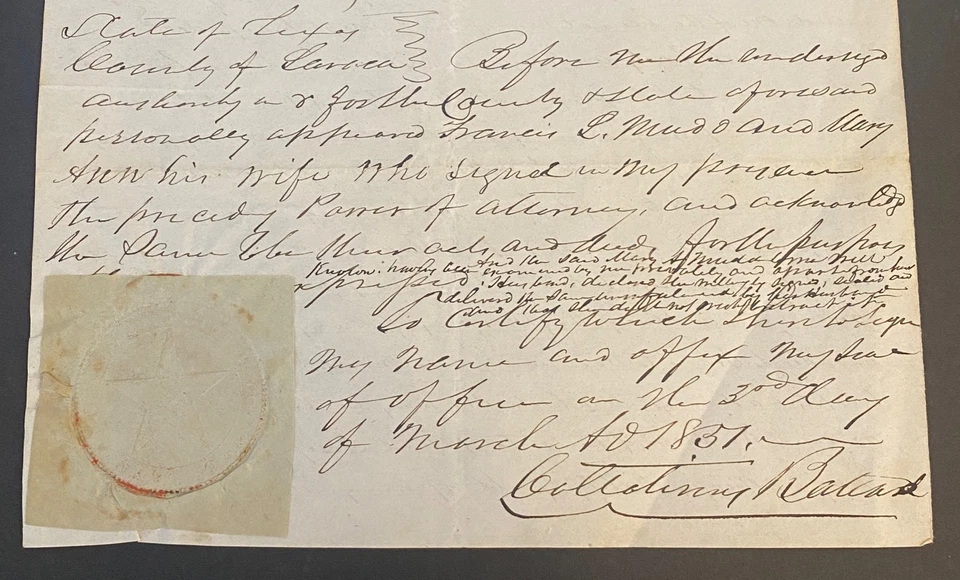 State of Texas
County of Lavaca Before me the undersigd
authority in & for the County & state aforesaid
personally appeared Francis L. Mudd and Mary
Ann his wife who signed in my presence
the precedg Power of attorney, and acknowledg
the same to be their acts and deeds for the purposes
expressed
and the said Mary A Mudd
having been examined by me privately and apart from her
Husband, declared she willingly signed, sealed and
delivered the same
and that she did not wish to retract it
To Certify which I hereto sign
my name and affix my seal
of office on the 3rd day
of March A D 1851.